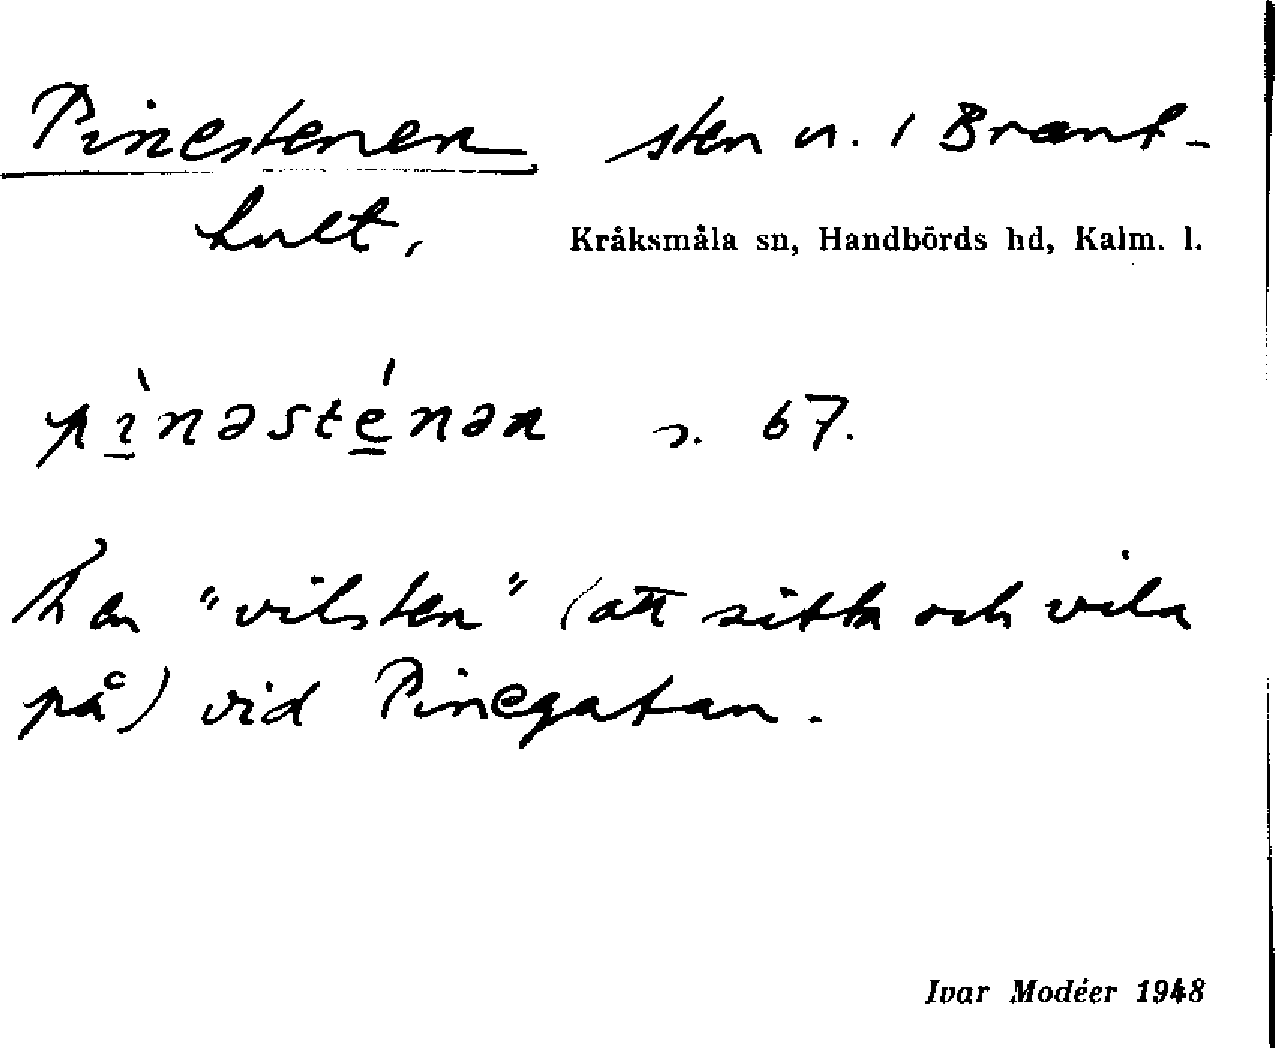 Pinestenen sten n. i Brant-
hult,
Kråksmåla sn, Handbörds hd, Kalm. l.
pìnəsténən s. 67.
en "vilsten" (att sitta och vila
på) vid Pinegatan.
Ivar Modéer 1948